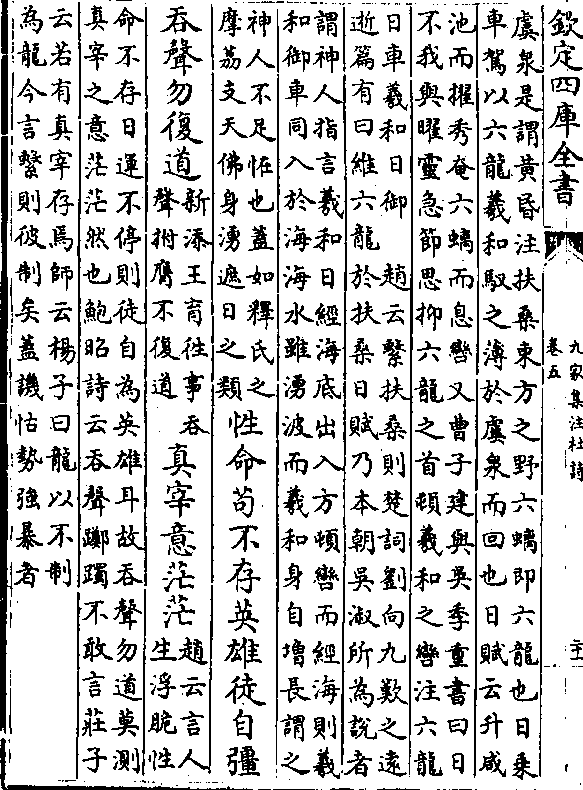 欽定四庫全書
九家集注杜詩
卷五
二十一
虞泉是謂黃昏注扶桑東方之野六螭即六龍也日乘
車駕以六龍羲和馭之薄於虞泉而回也日賦云升咸
池而擢秀奄六螭而息轡又曹子建與吳季重書曰日
不我與曜靈急節思抑六龍之首頓羲和之轡注六龍
日車羲和日御 趙云繫扶桑則楚詞劉向九歎之遠
逝篇有曰維六龍於扶桑日賦乃本朝吳淑所為說者
謂神人指言羲和日經海底出入方頓轡而經海則羲
和御車同入於海海水雖湧波而羲和身自增長謂之
神人不足恠也蓋如釋氏之
摩荔支天佛身湧遮日之類
性命苟不存英雄徒自彊
吞聲勿復道
新添王育徃事吞
聲拊膺不復道
真宰意茫茫
趙云言人
生浮脆性
命不存日運不停則徒自為英雄耳故吞聲勿道莫測
真宰之意茫茫然也鮑昭詩云吞聲躑躅不敢言莊子
云若有真宰存焉師云楊子曰龍以不制
為龍今言繫則彼制矣蓋譏怙勢強暴者